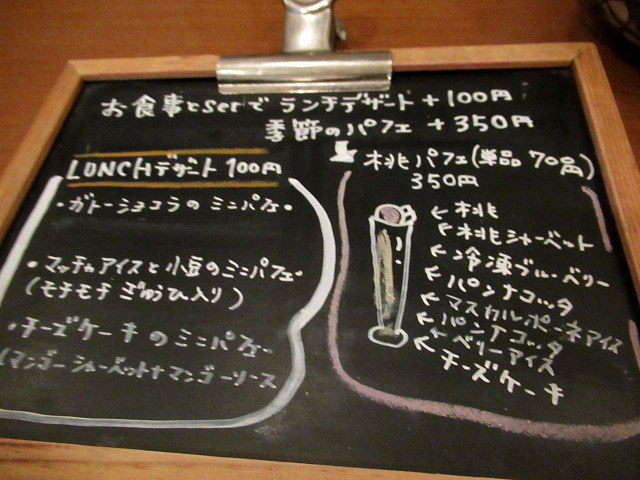 お食事とsetで ランチデザート +100円
季節のパフェ +350円
LUNCHデザート 100円
・ガトーショコラのミニパフェ・
・マッチャアイスと小豆のミニパフェ・
(モチモチぎゅうひ入り)
・チーズケーキのミニパフェ・
(マンゴーシャーベット+マンゴーソース
桃パフェ(単品 700円)
350円
←桃
←桃シャーベット
←冷凍ブルーベリー
←パンナコッタ
←マスカルポーネアイス
←パンナコッタ
←ベリーアイス
←チーズケーキ